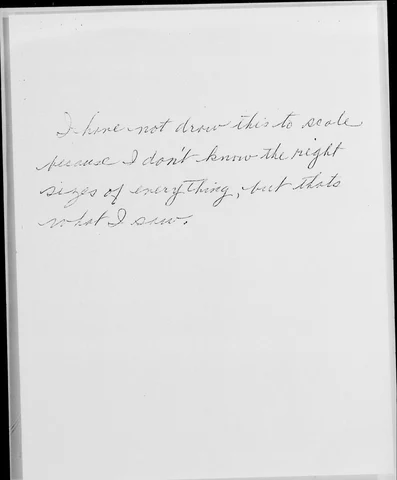 I have not drow this to scale
because I don't know the right
sizes of everything, but thats
what I saw.